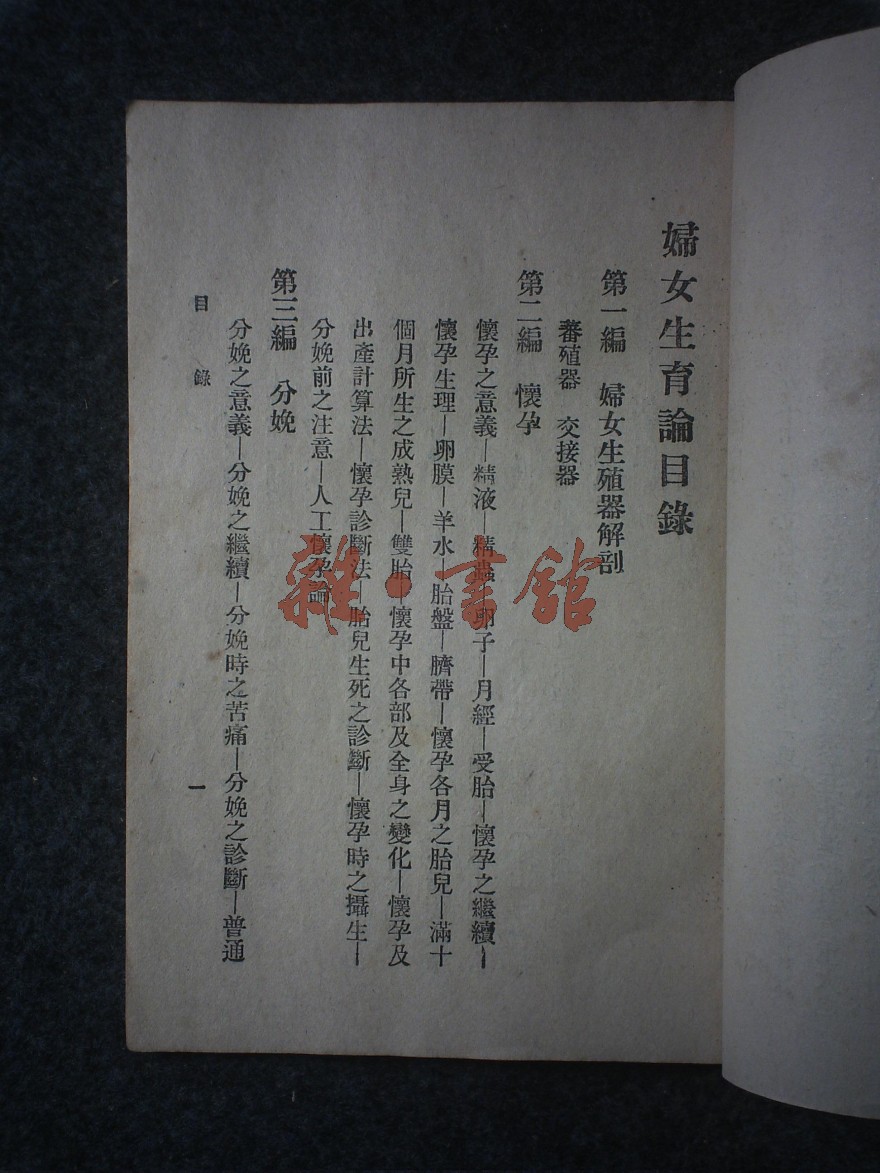 婦女生育論目錄
第一編　婦女生殖器解剖
蕃殖器　交接器
第二編　懷孕
懷孕之意義—精液—精蟲—卵子—月經—受胎—懷孕之繼續—
懷孕生理—卵膜—羊水—胎盤—臍帶—懷孕各月之胎兒—滿十
個月所生之成熟兒—雙胎—懷孕中各部及全身之變化—懷孕及
出產計算法—懷孕診斷法—胎兒生死之診斷—懷孕時之攝生—
分娩前之注意—人工懷孕論
第三編　分娩
分娩之意義—分娩之繼續—分娩時之苦痛—分娩之診斷—普通
目錄　一
雜·書館